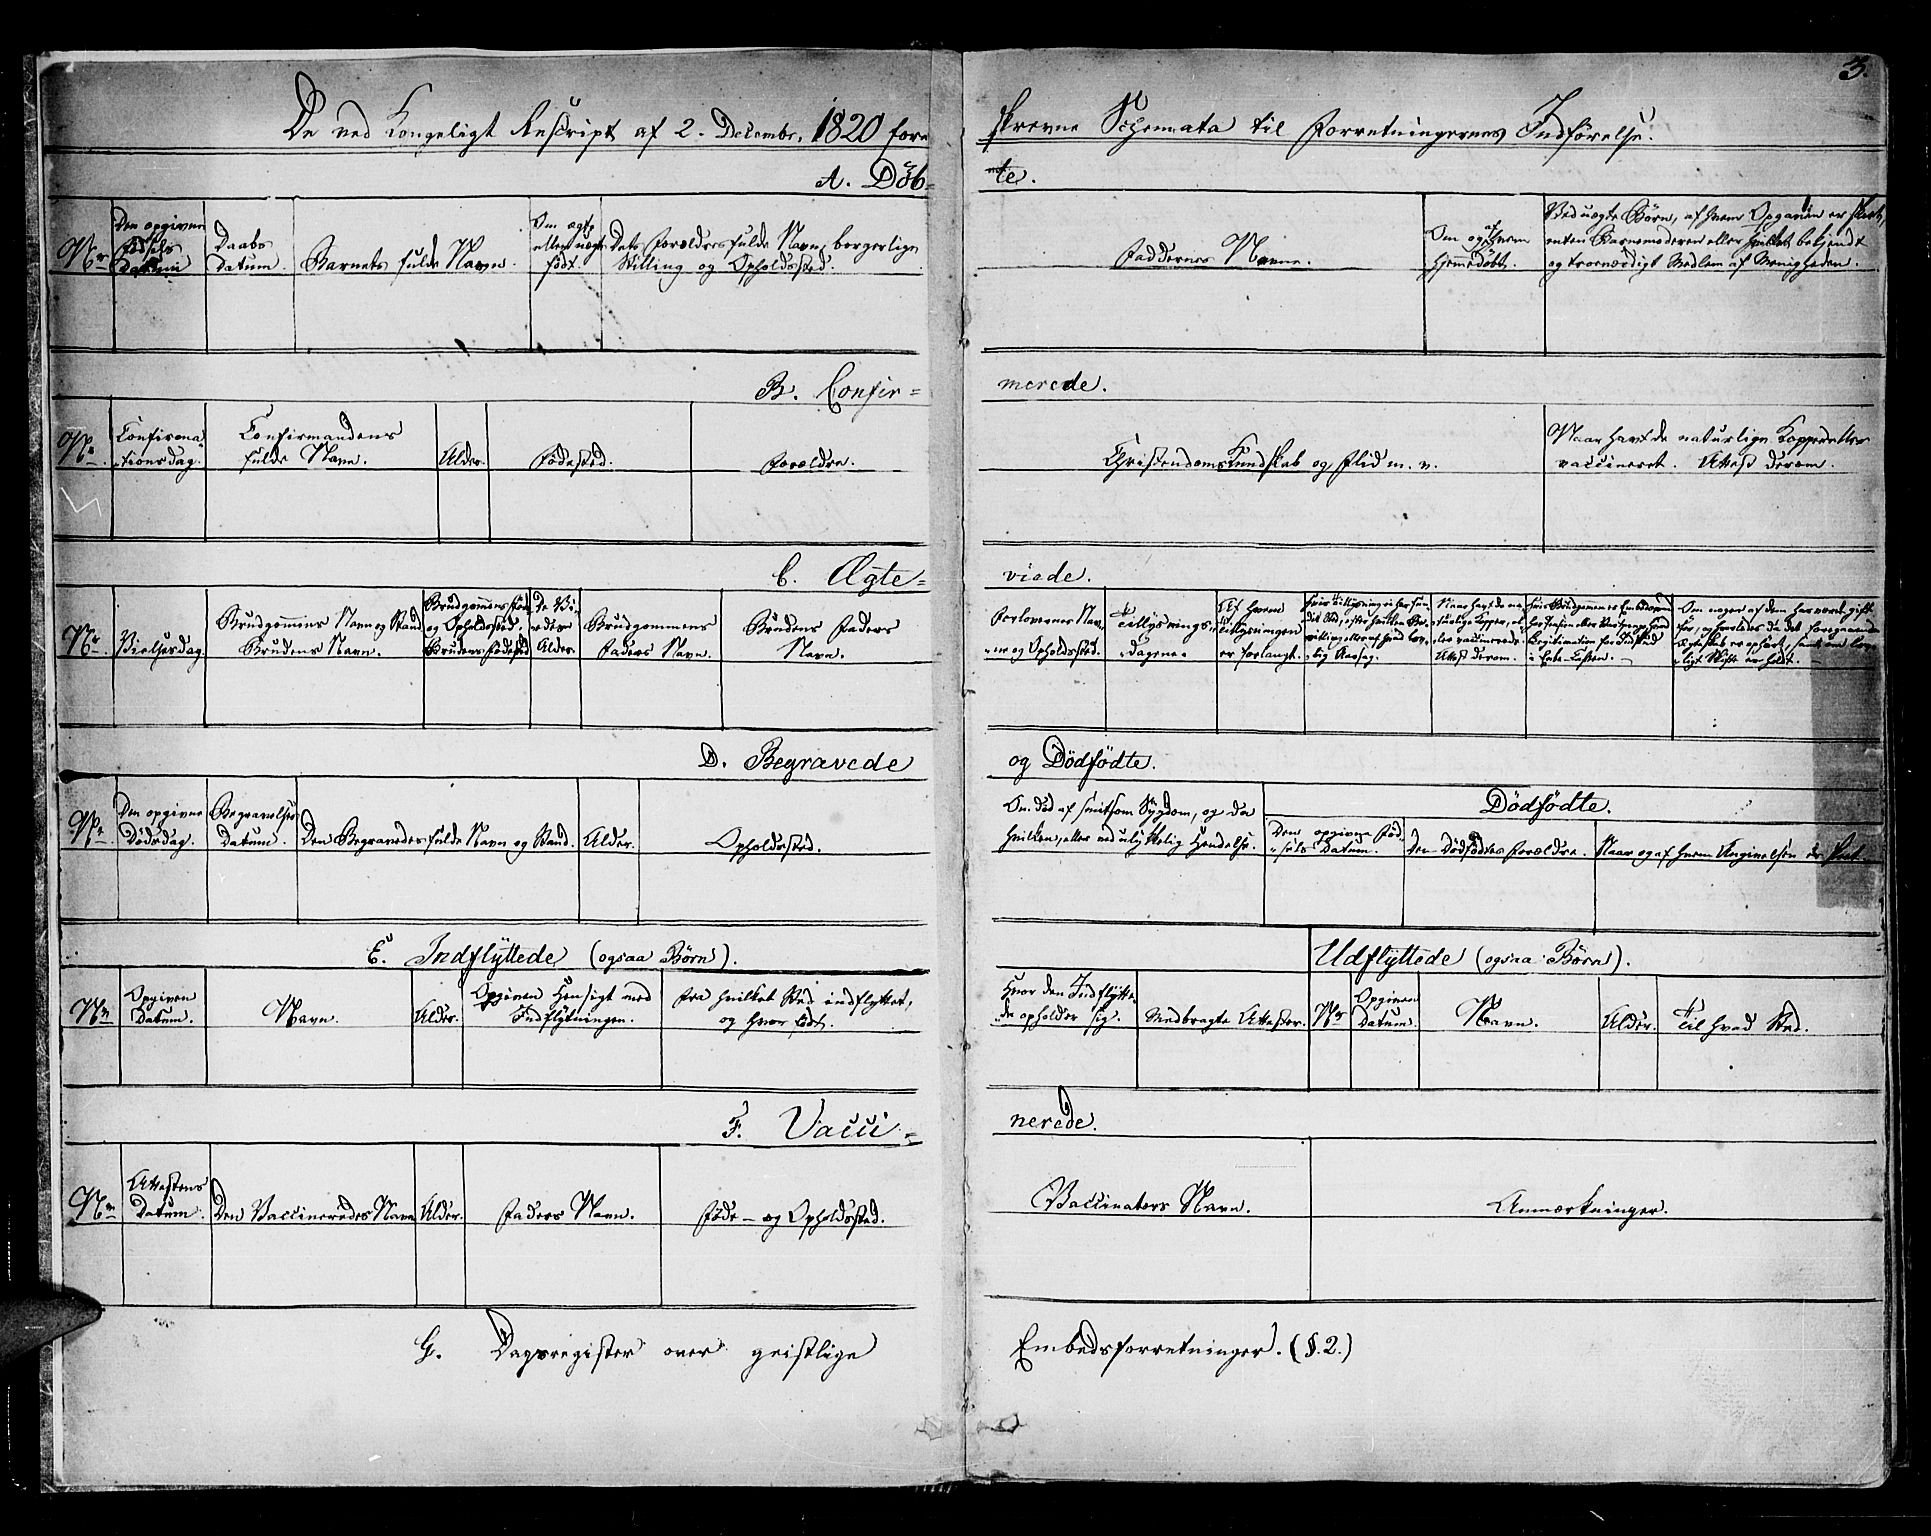 3.
De ved Kongeligt Rescript af 2. Decembr. 1820 fore
skrevne Schemata til Forretningernes Indförelse.
A. Döb=
te.
Nr
Den opgivne
Födsels
Datum
Daabs
Datum.
Barnets fulde Navn.
Om ægte
eller uægte
födt.
Dets Forældres fulde Navne borgerlige
Stilling og Opholdssted.
Faddernes Navne.
Om og af hvem
hjemmedöbt.
Ved uægte Börn, af hvem Opgaven er skeet,
enten Barnemoderen eller hvilket bekjendt
og troeværdigt Medlem af Menigheden.
B. Confir=
merede.
Nr.
Confirma
tionsdag.
Confirmandens
fulde Navn.
Alder.
Födested.
Forældre.
Christendoms Kundskab og Flid m. v.
Naar havt de naturlige Kopper eller
vaccineret. Attest derom.
C. Ægte=
viede.
Nr
Vielsesdag
Brudgommens Navn og Stand
Brudens Navn.
Brudgommens Föde
og Opholdssted.
Brudens Födested
De Vi-
edes
Alder.
Brudgommens
Faders Navn.
Brudens Faders
Navn.
Forlovernes Nav
ne og Opholdssted.
Tillysnings
Dagene
Af hvem
Tillysningen
er forlangt.
Naar havt de na
turlige Kopper, el
ler vaccinerede.
Attest derom.
Om nogen af dem har været gift
för, og hvorledes da det foregaaende
Ægteskab er ophört, samt om lov
ligt Skifte er holdt.
D. Begravede
og Dödfödte.
Nr.
Den opgivne
Dödsdag.
Begravelses
Datum.
Den Begravedes fulde Navn og Stand.
Alder.
Opholdssted.
Om död af smitsom Sygdom, og da
hvilken, eller ved ulykkelig Hændelse.
Dödfödte.
Den opgivne Föd
sels Datum.
Den Dödfödtes Forældre.
Naar og af hvem Angivelsen er skeet.
E. Indflyttede (ogsaa Börn).
Udflyttede (ogsaa Börn).
Nr
Opgiven
Datum.
Navn.
Alder.
Opgiven Hensigt med
Indflytningen.
Fra hvilket Sted indflyttet,
og hvor födt.
Hvor den Indflytte
de opholder sig.
Medbragte Attester.
Nr
Opgiven
Datum.
Navn.
Alder.
Til hvad Sted.
F. Vacci=
nerede.
Nr
Attestens
Datum.
Den Vaccineredes Navn
Alder.
Faders Navn.
Föde- og Opholdssted.
Vaccinators Navn.
Anmærkninger.
G. Dagsregister over geistlige
Embedsforretninger. (§.2.)